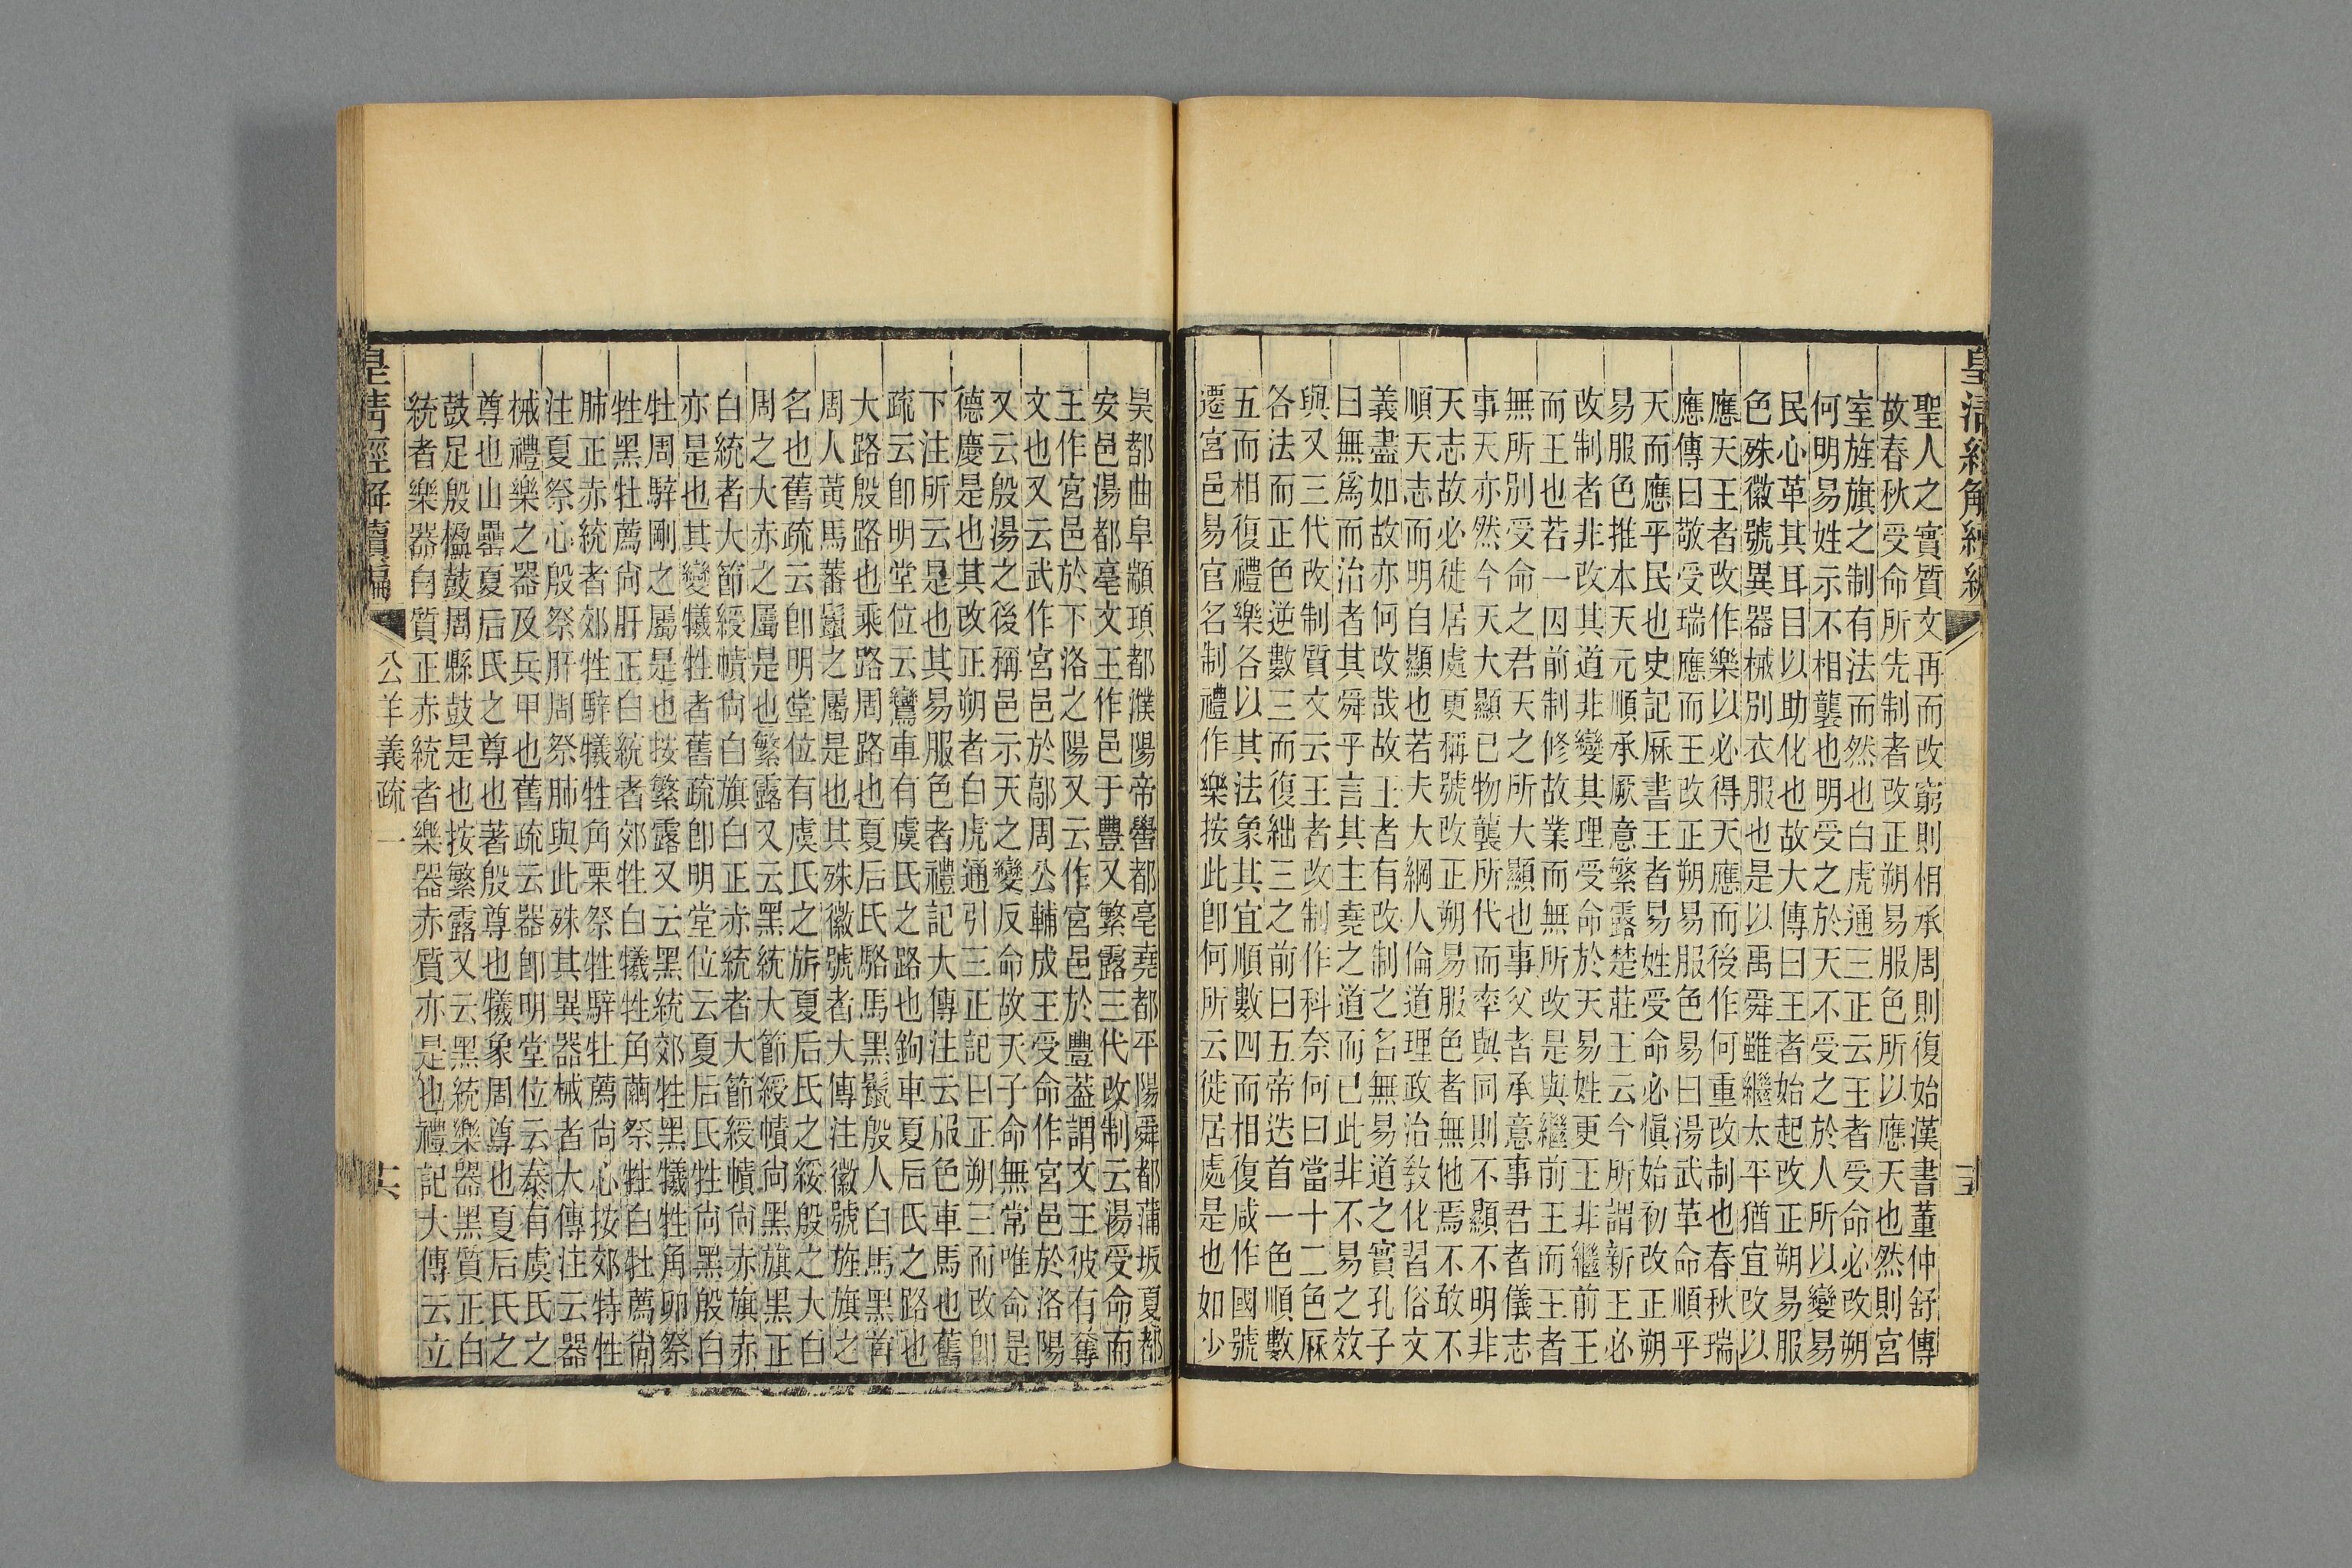 皇清經解續編
聖人之實質文再而改窮則相承周則復始漢書董仲舒傳
故春秋受命所先制者改正朔易服色所以應天也然則宮
室旌旗之制有法而然也白虎通三正云王者受命必改朔
何明易姓示不相襲也明受之於天不受之於人所以變易
民心革其耳目以助化也故大傳曰王者始起改正朔易服
色殊徽號異器械別衣服也是以禹舜雖繼太平猶宜改以
應天王者改作樂以必得天應而後作何重改制也春秋瑞
應傳曰敬受瑞應而王改正朔易服色易曰湯武革命順乎
天而應乎民也史記厤書王者易姓受命必愼始初改正朔
易服色推本天元順承厥意繁露楚莊王云今所謂新王必
改制者非改其道非變其理受命於天易姓更王非繼前王
而王也若一因前制修故業而無所改是與繼前王而王者
無所別受命之君天之所大顯也事父者承意事君者儀志
事天亦然今天大顯已物襲所代而率與同則不顯不明非
天志故必徙居處更稱號改正朔易服色者無他焉不敢不
順天志而明自顯也若夫大綱人倫道理政治敎化習俗文
義盡如故亦何改哉故王者有改制之名無易道之實孔子
曰無爲而治者其舜乎言其主堯之道而已此非不易之效
與又三代改制質文云王者改制作科奈何曰當十二色厤
各法而正色逆數三而復絀三之前曰五帝迭首一色順數
五而相復禮樂各以其法象其宜順數四而相復咸作國號
遷宮邑易官名制禮作樂按此卽何所云徙居處是也如少
昊都曲阜顓頊都濮陽帝嚳都亳堯都平陽舜都蒲坂夏都
安邑湯都亳文王作邑于豐又繁露三代改制云湯受命而
王作宮邑於下洛之陽又云作宮邑於豐葢謂文王彼有奪
文也又云武作宮邑於鄗周公輔成王受命作宮邑於洛陽
又云殷湯之後稱邑示天之變反命故天子命無常唯命是
德慶是也其改正朔者白虎通引三正記曰正朔三而改卽
下注所云是也其易服色者禮記大傳注云服色車馬也舊
疏云卽明堂位云鸞車有虞氏之路也鉤車夏后氏之路也
大路殷路也乘路周路也夏后氏駱馬黑鬣殷人白馬黑首
周人黃馬蕃鬣之屬是也其殊徽號者大傳注徽號旌旗之
名也舊疏云卽明堂位有虞氏之旂夏后氏之綏殷之大白
周之大赤之屬是也繁露又云黑統大節綬幘尙黑旗黑正
白統者大節綬幘尙白旗白正赤統者大節綬幘尙赤旗赤
亦是也其變犧牲者舊疏卽明堂位云夏后氏牲尙黑殷白
牡周騂剛之屬是也按繁露又云黑統郊牲黑犧牲角卵祭
牲黑牡薦尙肝正白統者郊牲白犧牲角繭祭牲白牡薦尙
肺正赤統者郊牲騂犧牲角栗祭牲騂牡薦尙心按郊特牲
注夏祭心殷祭肝周祭肺與此殊其異器械者大傳注云器
械禮樂之器及兵甲也舊疏云器卽明堂位云泰有虞氏之
尊也山罍夏后氏之尊也著殷尊也犧象周尊也夏后氏之
鼓足殷楹鼓周縣鼓是也按繁露又云黑統樂器黑質正白
統者樂器白質正赤統者樂器赤質亦是也禮記大傳云立
皇清經解續編 公羊義疏一